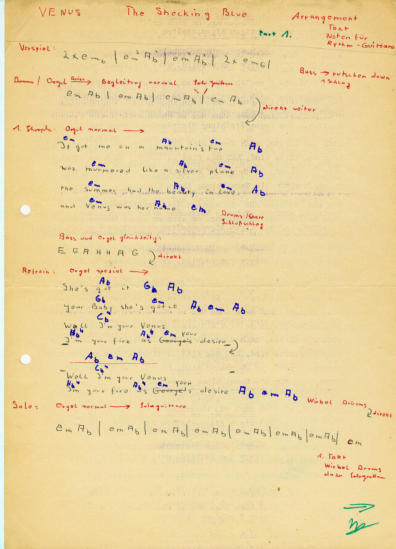 VENUS The Shocking Blue
Arrangement
Text
Noten für
Rythm-Guitarre
Part 1.
Vorspiel: 2x em6 | em Ab | em Ab | 2x em6 |
Bass → rutschen down
1 Schlag
Drum / Orgel → Begleitung normal → Solo Guitarre
em Ab | em Ab | em Ab | em Ab
direkt weiter
1. Strophe Orgel normal →
em Ab em Ab
got me on a mountain's top
em Ab em Ab
was murmered like a silver plane
em Ab em Ab
the summer had the beauty in Love
em Ab em
and Venus was her name
Drums
Bass und Orgel gleichzeitig:
E G A H H A G direkt
Refrain: Orgel spezial →
Ab Gb Ab
She's got it
Gb em Ab em Ab
your Baby she's got it
Cb4
Well I'm your Venus
Hb4 Ab4 em your
I'm your fire as George's desire
Ab em Ab
Cb4
Well I'm your Venus
Hb4 Ab4 em your
I'm your fire as George's desire Ab em Ab Wirbel Drums
direkt
Solo: Orgel normal → Sologuitarre
em Ab | em Ab | em Ab | em Ab | em Ab | em Ab | em Ab | em
1. Takt
Wirbel Drums